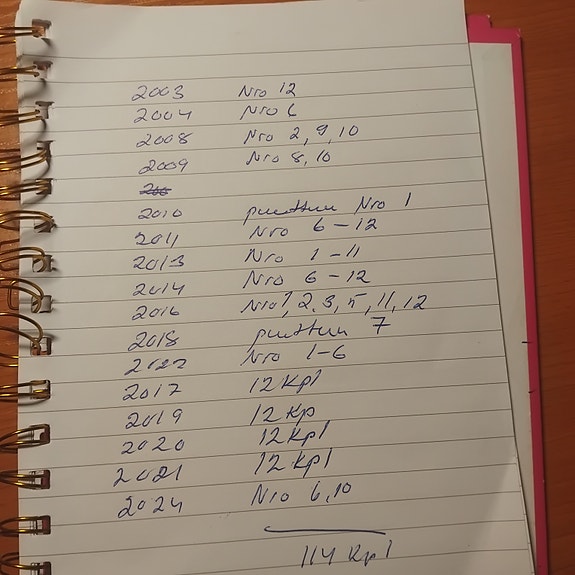 2003 Nro 12
2004 Nro 6
2008 Nro 2, 9, 10
2009 Nro 8, 10
200
2010 puuttuu Nro 1
2011 Nro 6-12
2013 Nro 1-11
2014 Nro 6-12
2016 Nro 1, 2, 3, 5, 11, 12
2018 puuttuu 7
2022 Nro 1-6
2017 12 Kpl
2019 12 Kp
2020 12 Kpl
2021 12 Kpl
2024 Nro 6, 10
114 Kpl